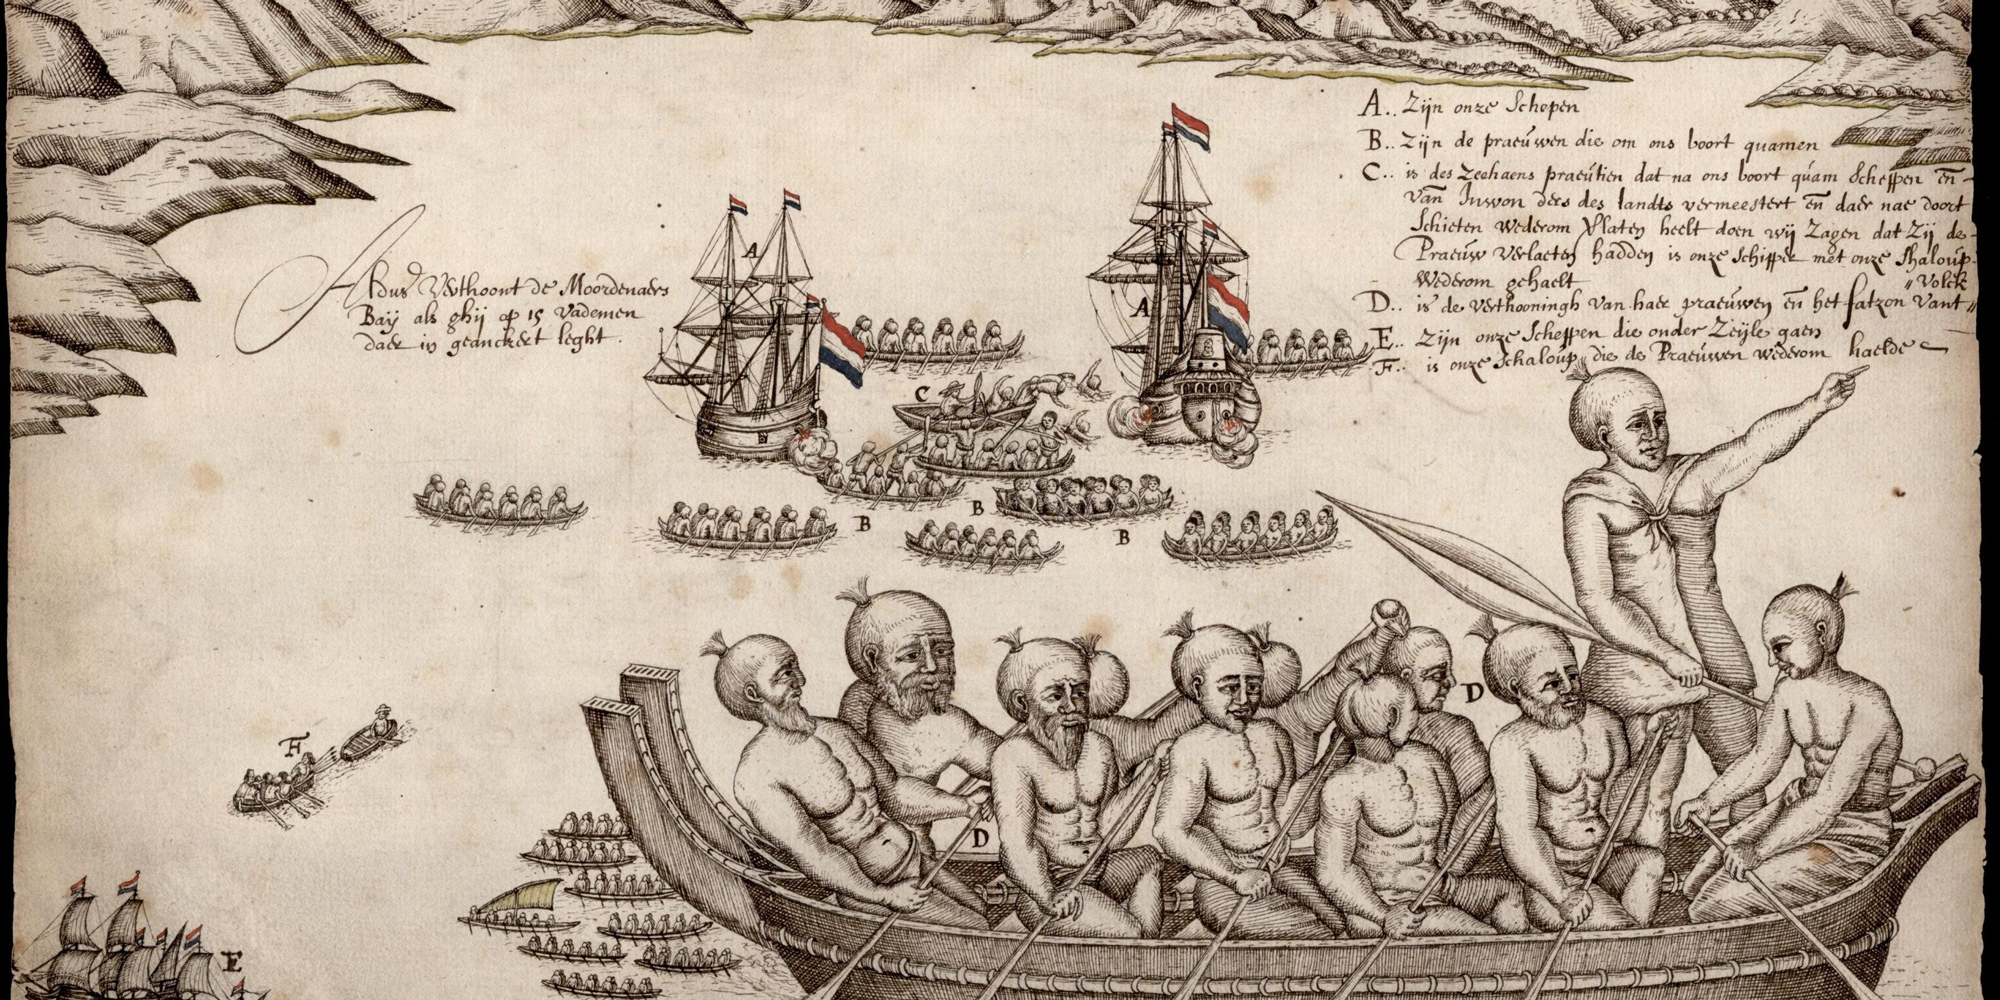 A.. Zijn onze Schepen
B.. Zijn de praeúwen die om ons boort quamen
C.. is des Zeehaens praeútien dat na ons boort qúam Scheppen en̄
van Inwon ders des landts vermeestert en̄ daer nae doort
Schieten Wederom Vlaten heelt doen wij Zagen dat Zij de
Praeúw Verlaeten hadden is onze Schipper met onze Shaloúp
Wederom gehaelt
D.. is de verthooningh van haer praeúwen en̄ het fatzon Vant
"Volck
E.. Zijn onze Scheppen die onder Zeijle gaen
F.. is onze Schaloúp die de Praeúwen wederom haelde
Aldus Verthoont de Moordenaers
Baij als ghij op 15 Vademen
daer in geanckert leght.
A
A
C
B
B
B
D
D
F
E